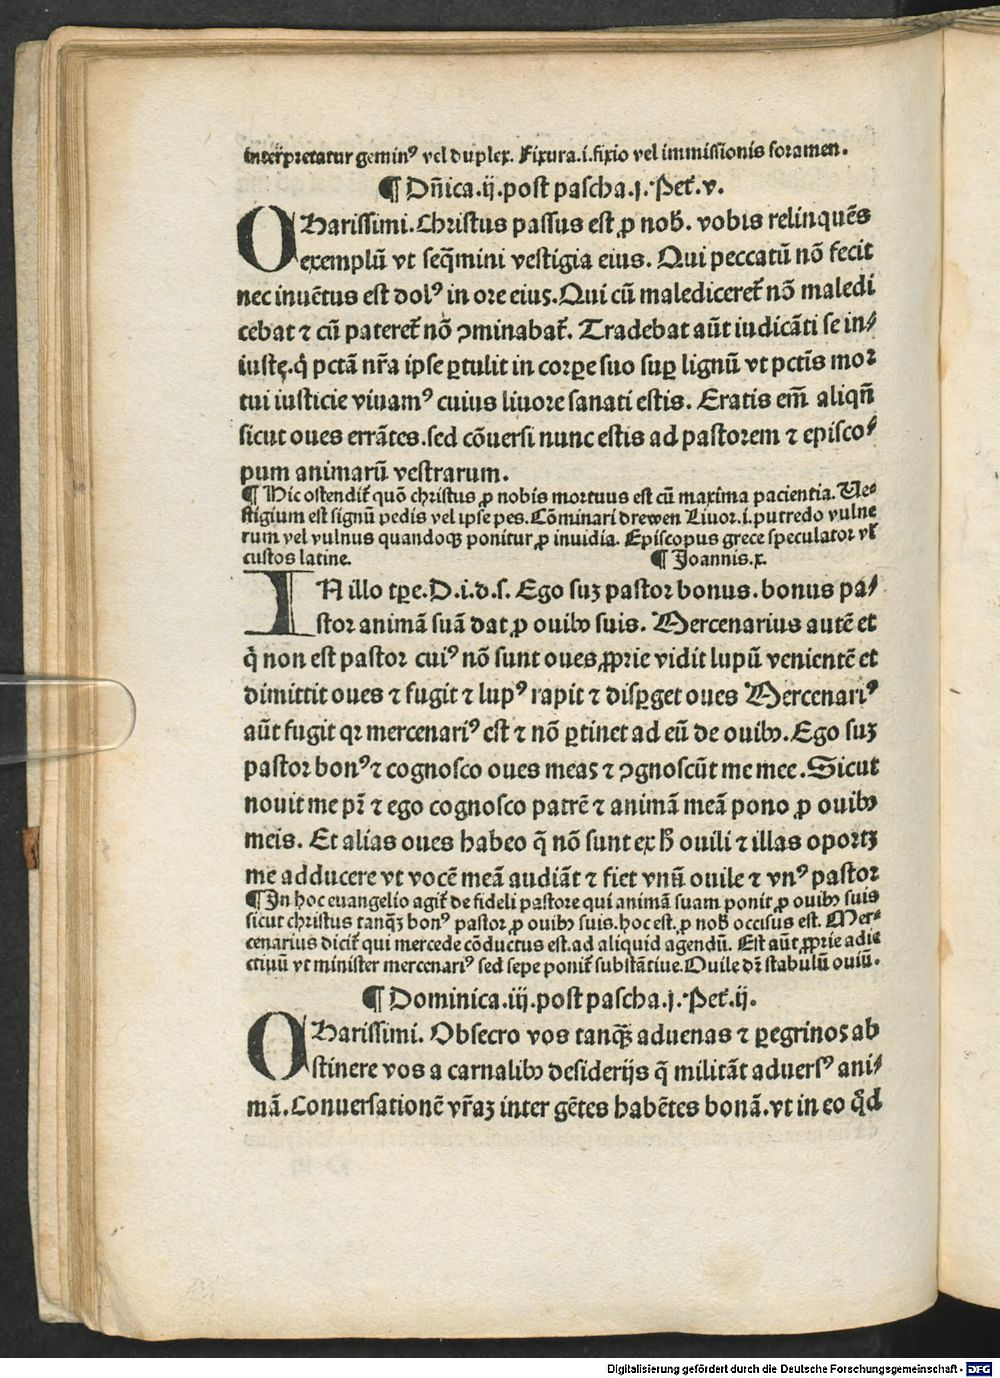 interpretatur geminꝰ vel duplex. Fixura.i.fixio vel immissionis foramen.
¶ Dn̄ica.ij.post pascha.j.Pet̄.v.
CHarissimi.Christus passus est ꝓ nob̄. vobis relinquēs
exemplū vt seq̄mini vestigia eius. Qui peccatū nō fecit
nec inuētus est dolꝰ in ore eius.Qui cū malediceret̄ nō maledi
cebat ⁊ cū pateret̄ nō ꝯminabat̄. Tradebat aūt iudicāti se in⸗
iustę.q̇ pctā nr̄a ipse ꝑtulit in corꝑe suo suꝑ lignū vt pctīs mor
tui iusticie viuamꝰ cuius liuore sanati estis. Eratis em̄ aliqn̄
sicut oues errātes.sed cōuersi nunc estis ad pastorem ⁊ episco⸗
pum animarū vestrarum.
¶ Hic ostendit̄ quō christus ꝓ nobis mortuus est cū maxima pacientia. Ve⸗
stigium est signū pedis vel ipse pes. Cōminari drewen Liuor.i.putredo vulne
rum vel vulnus quandoqꝫ ponitur ꝓ inuidia. Episcopus grece speculator vl̄
custos latine. ¶ Joannis.x.
IN illo tꝑe.D.i.d.s. Ego suꝫ pastor bonus.bonus pa⸗
stor animā suā dat ꝓ ouibꝰ suis. Mercenarius autē et
q̇ non est pastor cuiꝰ nō sunt oues ꝓprie vidit lupū venientē et
dimittit oues ⁊ fugit ⁊ lupꝰ rapit ⁊ disꝑget oues Mercenariꝰ
aūt fugit qr mercenariꝰ est ⁊ nō ꝑtinet ad eū de ouibꝰ.Ego suꝫ
pastor bonꝰ ⁊ cognosco oues meas ⁊ ꝯgnoscūt me mee.Sicut
nouit me pr̄ ⁊ ego cognosco patrē ⁊ animā meā pono ꝓ ouibꝰ
meis. Et alias oues habeo q̄ nō sunt ex h̄ ouili ⁊ illas oportꝫ
me adducere vt vocē meā audiāt ⁊ fiet vnū ouile ⁊ vnꝰ pastor
¶ In hoc euangelio agit̄ de fideli pastore qui animā suam ponit ꝓ ouibꝰ suis
sicut christus tanqꝫ bonꝰ pastor ꝓ ouibꝰ suis.hoc est.ꝓ nob̄ occisus est. Mer⸗
cenarius dicit̄ qui mercede cōductus est.ad aliquid agendū. Est aūt ꝓprie adie
ctiuū vt minister mercenariꝰ sed sepe ponit̄ substātiue.Ouile dr̄ stabulū ouiū.
¶ Dominica.iij.post pascha.j.Pet̄.ij.
CHarissimi. Obsecro vos tanqꝫ aduenas ⁊ ꝑegrinos ab
stinere vos a carnalibꝰ desiderijs q̄ militāt aduersꝰ ani⸗
mā.Conuersationē vr̄aꝫ inter gētes habētes bonā.vt in eo qd̄
Digitalisierung gefördert durch die Deutsche Forschungsgemeinschaft - DFG